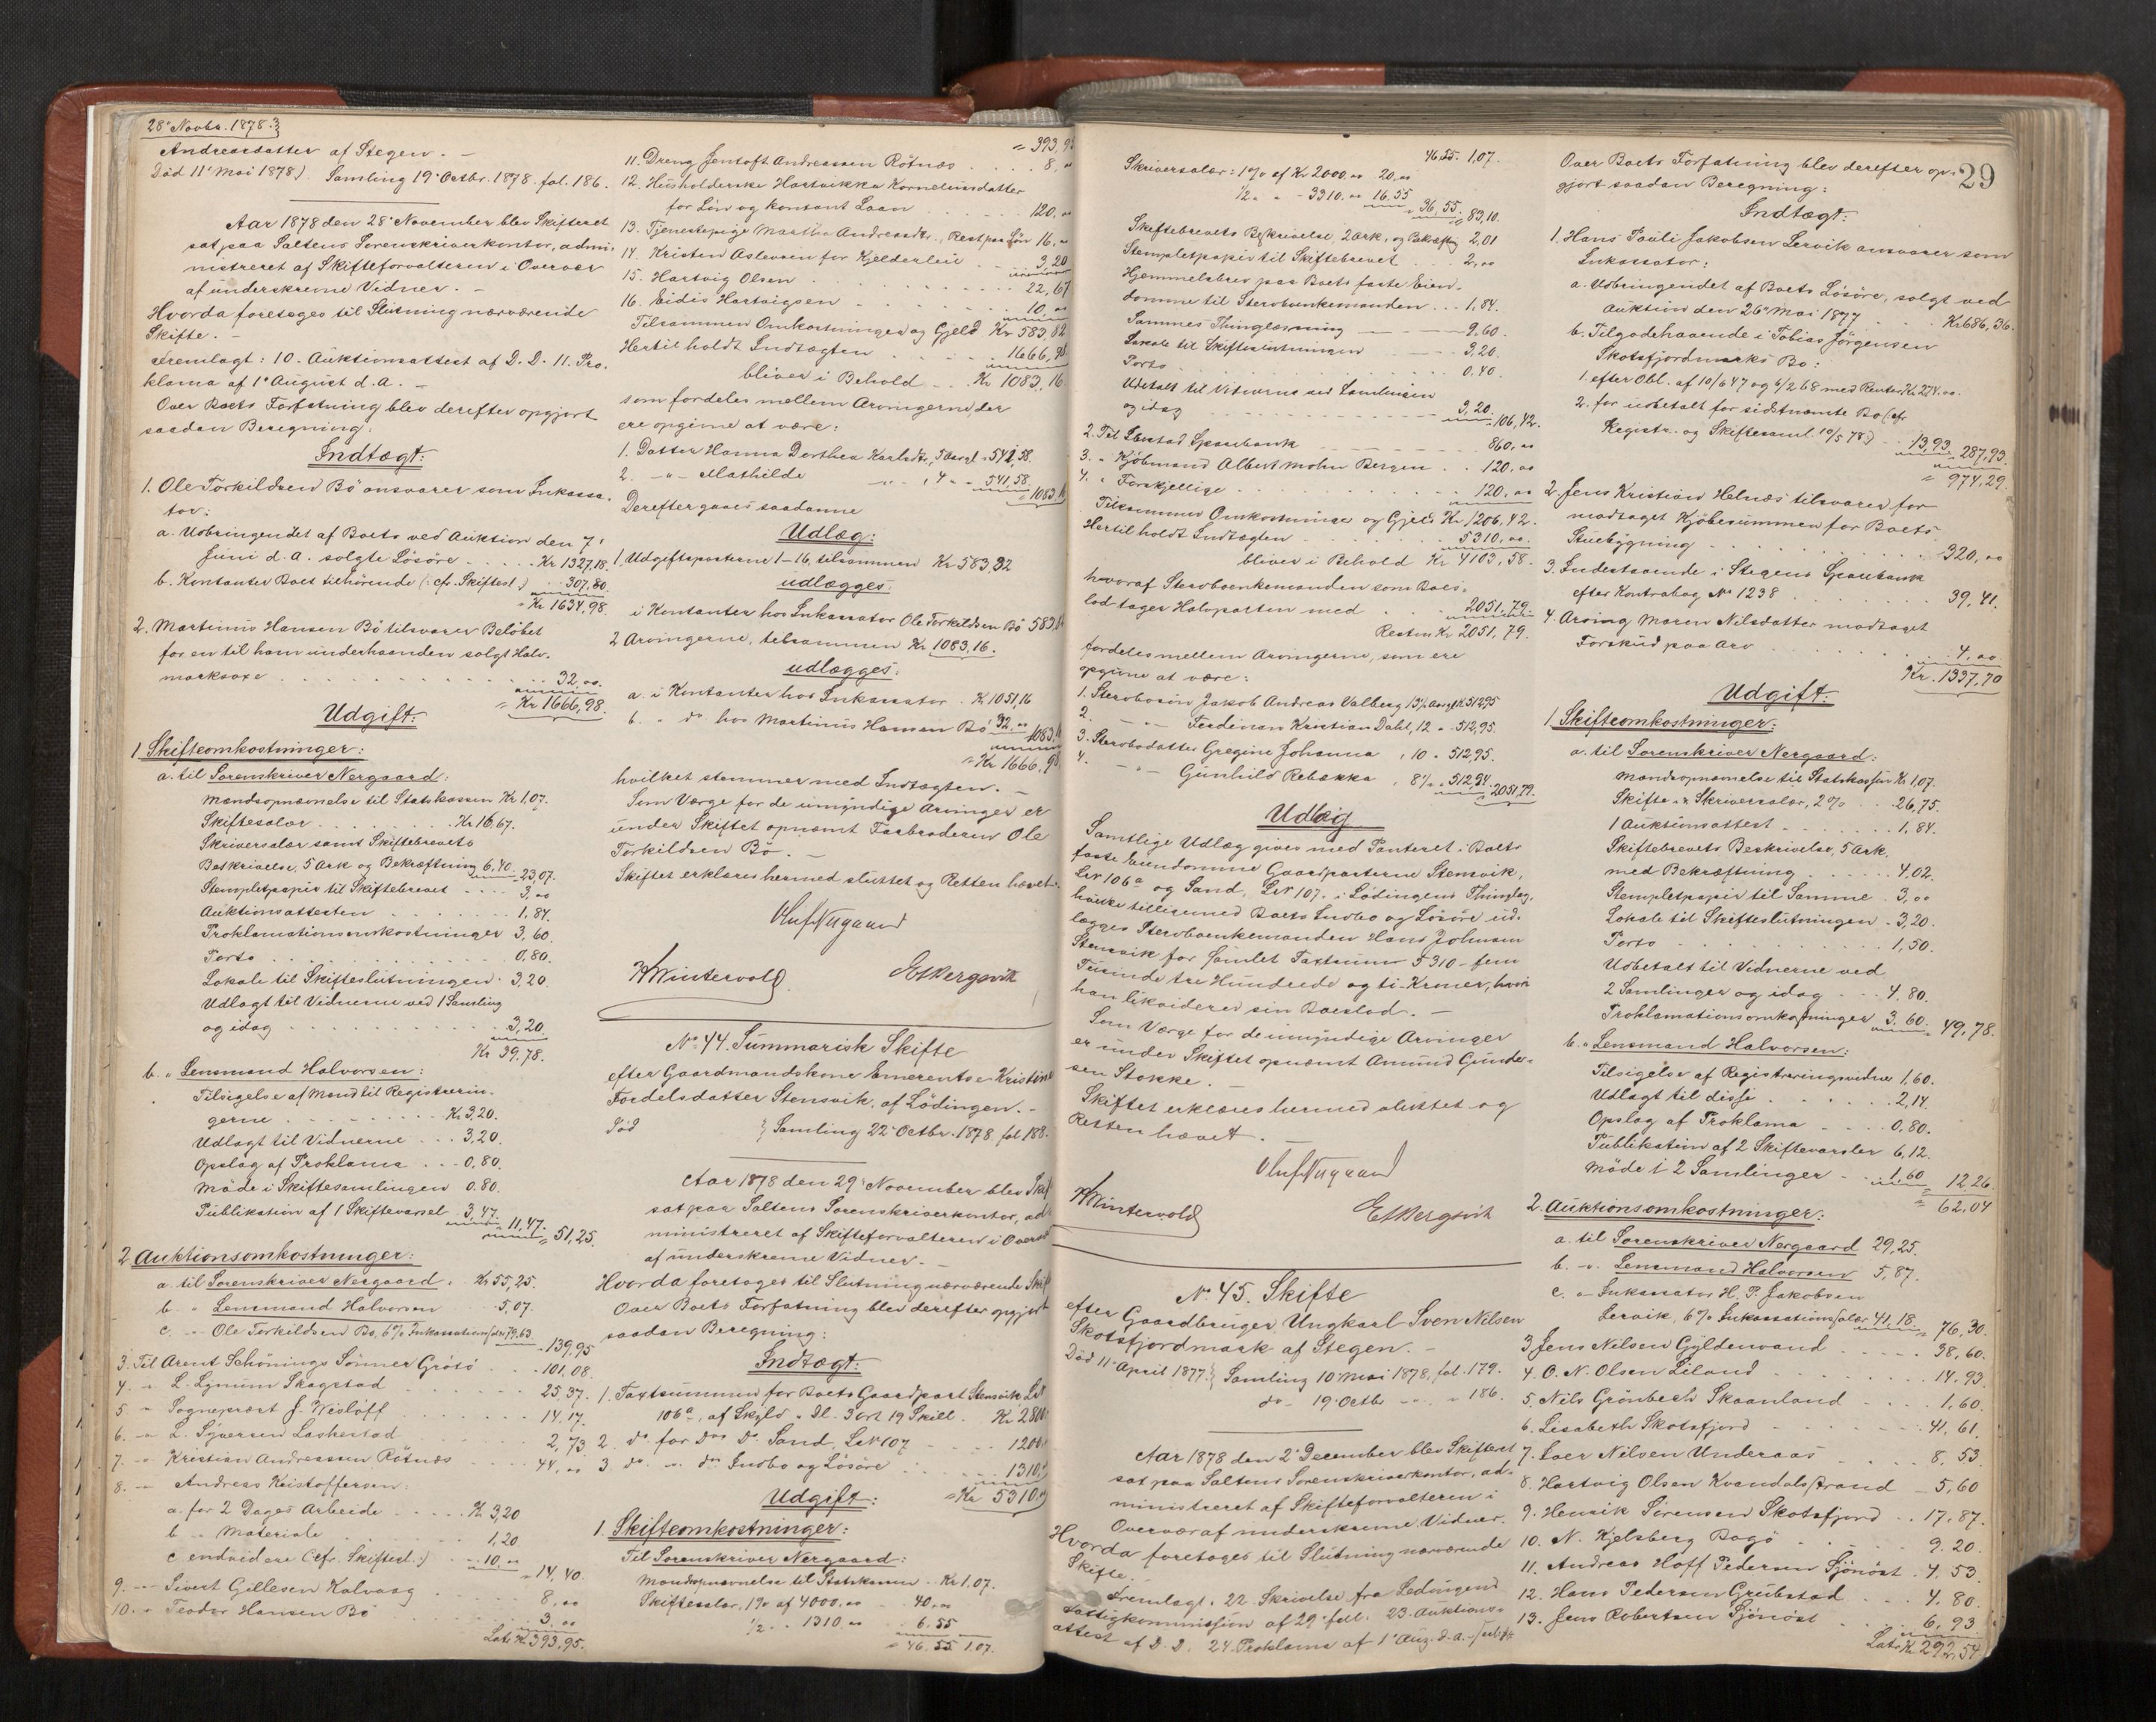 28' Novbr. 1878.
Andreasdatter af Stegen. –
Död 11' Mai 1878). Samling 19' Octbr. 1878. fol. 186.
Aar 1878 den 28' November blev Skifteret
sat paa Saltens Sorenskriverkontor, admi-
nistreret af Skifteforvalteren i Overvær
af underskrevne Vidner. –
Hvorda foretoges til Slutning nærværende
Skifte. –
Fremlagt: 10. Auktionsattest af D. D. 11. Pro-
klama af 1' August d. A. –
Over Boets Forfatning blev derefter opgjort
saadan Beregning:
Indtægt:
1. Ole Torkildsen Bö ansvarer som Inkassa-
tor:
a. Udbringendet af Boets ved Auktion den 7'
Juni d. A. solgte Lösöre . . . . Kr 1327,18.
b. Kontanter Boet tilhörende (: cfr. Skiftesl.) . . 307,80.
Kr 1634,98.
2. Martinus Hansen Bö tilsvarer Belöbet
for en til ham underhaanden solgt Halv-
marksoxe . . . . 32,00.
Kr 1666,98.
Udgift:
1 Skifteomkostninger:
a. til Sorenskriver Nergaard:
Mandsopnævnelse til Statskassen Kr 1,07.
Skiftesalær . . . . Kr 16,67.
Skriversalær samt Skiftebrevets
Beskrivelse, 5 Ark og Bekræftning 6,40. 23,07.
Stempletpapir til Skiftebrevet . . . . 3,00
Auktionsattesten . . . . 1,84.
Proklamationsomkostninger 3,60.
Porto . . . . 0,80.
Lokale til Skifteslutningen . 3,20.
Udlagt til Vidnerne ved 1 Samling
og idag . . . . 3,20.
Kr 39,78.
b. " Lensmand Halvorsen:
Tilsigelse af Mænd til Registrerin-
gerne . . . . Kr 3,20.
Udlagt til Vidnerne . . . 3,20.
Opslag af Proklama . . . 0,80.
Möde i Skiftesamlingen 0,80.
Publikation af 1 Skiftevarsel . 3,47.
11,47. 51,25.
2 Auktionsomkostninger:
a. til Sorenskriver Nergaard . Kr 55,25.
b. " Lensmand Halvorsen 5,07.
c. " Ole Torkildsen Bö, 6% Inkassationssalær 79,63.
139,95
3. Til Arent Schönings Sönner Grötö . . 101,08.
4. " L. Lynum Skagstad . . . . 25,37.
5 " Sognepræst J. Wislöff . . . . 14,17.
6. " L. Syversen Laskestad . . . . 2,73
7. " Kristian Andreassen Rötnæs . . . . 44,00
8. " Andreas Kristoffersen:
a. for 2 Dages Arbeide . . . . Kr 3,20
b. " Materiale . . . . 1,20
c. endvidere (cfr. Skiftesl.) . . 10,00
14,40.
9. " Sivert Gillesen Kalvaag . . . . 8,00
10. " Teodor Hansen Bö . . . . 3,00
Lats Kr 393,95.
393,95
11. Dreng Jentoft Andreassen Rötnæs . . . . 8,00
12. Husholderske Hartvikka Korneliusdatter
for Lön og kontant Laan . . . . 120,00
13. Tjenestepige Martha Andreasdtr., Rest paa Lön 16,00
14. Kristen Aslevsen for Kjelderleie . . 3,20
15. Hartvig Olsen . . . . 22,67
16. Eidis Hartvigsen . . . . 10,00
Tilsammen Omkostninger og Gjeld Kr 583,82
Hertil holdt Indtægten . . . . 1666,98.
bliver i Behold . . Kr 1083,16.
som fordeles mellem Arvingerne der
ere opgivne at være:
1. Datter Hanna Dorthea Karlsdtr., 5 Aar gl. 541,58.
2. " Mathilde " , 4 " 541,58.
1083,16
Derefter gives saadanne
Udlæg:
1. Udgiftsposterne 1–16, tilsammen Kr 583,82
udlægges:
i Kontanter hos Inkassator Ole Torkildsen Bö 583,82
2 Arvingerne, tilsammen Kr 1083,16.
udlægges:
a. i Kontanter hos Inkassator . Kr 1051,16
b. " do hos Martinus Hansen Bö 32,00 1083,16
Kr 1666,98
hvilket stemmer med Indtægten. –
Som Værge for de umyndige Arvinger er
under Skiftet opnævnt Farbroderen Ole
Torkildsen Bö. –
Skiftet erklæres hermed sluttet og Retten hævet.
HWintervold
EtBergsvik
No 44. Summarisk Skifte
efter Gaardmandskone Emerentse Kristine
Fordelsdatter Stensvik, af Lödingen. –
Död } Samling 22' Octbr. 1878 fol 188.
Aar 1878 den 29' November blev Skif
sat paa Saltens Sorenskriverkontor, ad
ministreret af Skifteforvalteren i Overvæ
af underskrevne Vidner. –
Hvorda foretoges til Slutning nærværende Skif
Over Boets Forfatning blev derefter opgjort
saadan Beregning:
Indtægt:
1. Taxtsummen for Boets Gaardpart Stensvik LN
106a, af Skyld " Dl. 3 ort 19 Skill. Kr 2800
2. do for Do Do Sand, LN 107 . . . . 1200
3. do " do Indbo og Lösöre . . . . 1310,
Kr 5310,
Udgift:
1. Skifteomkostninger:
Til Sorenskriver Nergaard:
Mandsopnævnelse til Statskassen . . Kr 1,07.
Skiftesalær, 1% af 4000,00 . . 40,00
1/2 " " 1310,00 . . 6,55
46,55 1,07.
29
46,55. 1,07.
Skriversalær: 1% af Kr 2000,00 20,00
1/2 " " - 3310,00 16,55
36,55. 83,10.
Skiftebrevets Beskrivelse, 2 Ark, og Bekræftng 2,01
Stempletpapir til Skiftebrevet . . . 2,00
Hjemmelsbrev paa Boets faste Eien-
domme til Stervboenkemanden . . . 1,84.
Sammes Thinglæsning . . . . 9,60.
Lokale til Skifteslutningen . . . . 3,20.
Porto . . . . 0,40.
Udbetalt til Vidnerne ved Samlingen
og idag . . . . 3,20.
106,42.
2. Til Ibestad Sparebank . . . . 860,00
3. " Kjöbmand Albert Mohn Bergen . . 120,00
4. " Forskjellige . . . . 120,00
Tilsammen Omkostninger og Gjeld Kr 1206,42.
Hertil holdt Indtægten . . . . 5310,00.
bliver i Behold Kr 4103,58.
hvoraf Stervboenkemanden som Boes-
lod tager Halvparten med . . . 2051,79.
Resten Kr 2051,79.
fordeles mellem Arvingerne, som ere
opgivne at være:
1. Stervbosön Jakob Andreas Valberg 13 1/2 Aar gl. Kr 512,95
2. " Ferdinan Kristian Dahl, 12 " 512,95.
3. Stervbodatter Gregine Johanna , 10 " 512,95.
4. " Gunhild Rebækka , 8 1/2 " 512,94.
2051,79.
Udlæg
Samtlige Udlæg gives med Panteret i Boets
faste Eiendomme Gaardparterne Stensvik,
LN 106a og Sand, LN 107, i Lödingens Thinglag,
hvilke tilligemed Boets Indbo og Lösöre ud-
lægges Stervboenkemanden Hans Johnsen
Stensvik for samlet Taxtsum 5310 – fem
Tusinde tre Hundrede og ti – Kroner, hvori
han likviderer sin Boeslod. –
Som Værge for de umyndige Arvinger
er under Skiftet opnævnt Amund Gunder-
sen Stokke. –
Skiftet erklæres hermed sluttet og
Retten hævet. –
HWintervold
EtBergsvik
No 45. Skifte
efter Gaardbruger Ungkarl Sven Nilsen
Skotsfjordmark af Stegen. –
Död 11' April 1877. } Samling 10' Mai 1878, fol. 179.
do 19' Octbr " " 186.
Aar 1878 den 2' December blev Skifteret
sat paa Saltens Sorenskriverkontor, ad-
ministreret af Skifteforvalteren i
Overvær af underskrevne Vidner.
Hvorda foretoges til Slutning nærværende
Skifte.
Fremlagt: 22. Skrivelse fra Lödingens
Fattigkommission af 29' Juli. 23. Auktions-
attest af D. D. 24. Proklama af 1' Aug. d. A. –
Over Boets Forfatning blev derefter op-
gjort saadan Beregning:
Indtægt:
1. Hans Pauli Jakobsen Lervik ansvarer som
Inkassator:
a. Udbringendet af Boets Lösöre, solgt ved
Auktion den 26' Mai 1877 . . Kr 686,36.
b. Tilgodehavende i Tobias Jörgensen
Skotsfjordmarks Bo:
1. efter Obl. af 10/6 47 og 6/2 68 med Renter Kr 274,00.
2. for udbetalt for sidstnævnte Bo (cfr.
Registr. og Skiftesaml. 10/5 78.) . . 13,93. 287,93.
974,29.
2. Jens Kristian Helnæs tilsvarer for
modtaget Kjöbesummen for Boets
Stuebygning . . . . 320,00
3. Indestaaende i Stegens Sparebank
efter Kontrabog No 1238 . . . . 39,41.
4. Arving Maren Nilsdatter modtaget
Forskud paa Arv . . . . 4,00.
Kr. 1337,70
Udgift:
1 Skifteomkostninger:
a. til Sorenskriver Nergaard:
Mandsopnævnelse til Statskassen Kr 1,07.
Skifte- & Skriversalær, 2% . . 26,75.
1 Auktionsattest . . . . 1,84.
Skiftebrevets Beskrivelse, 5 Ark,
med Bekræftning . . . . 4,02.
Stempletpapir til Samme . 3,00
Lokale til Skifteslutningen . 3,20.
Porto . . . . 1,50.
Udbetalt til Vidnerne ved
2 Samlinger og idag . . . 4,80.
Proklamationsomkostninger 3,60. 49,78.
b. " Lensmand Halvorsen:
Tilsigelse af Registreringsvidner 1,60.
Udlagt til disse . . . . 2,14.
Opslag af Proklama . . . . 0,80.
Publikation af 2 Skiftevarsler 6,12.
Möde i 2 Samlinger . . 1,60 12,26
62,04
2. Auktionsomkostninger:
a. til Sorenskriver Nergaard 29,25.
b. " Lensmand Halvorsen 5,87.
c. " Inkassator H. P. Jakobsen
Lervik, 6% Inkassationssalær 41,18. 76,30.
3 Jens Nilsen Gyldenvand . . . . 38,60.
4. O. N. Olsen Liland . . . . 14,93.
5. Nils Grönbech Skaanland . . . . 1,60.
6. Lisabeth Skotsfjord . . . . 41,61.
7. Iver Nilsen Underaas . . . . 8,53.
8. Hartvig Olsen Kvandalstrand – 5,60
9. Henrik Sörensen Skotsfjord . . 17,87.
10. N. Kjelsberg Bogö . . . . 9,20.
11. Andreas Hoff Pedersen Sjönöst . 4,53.
12. Hans Pedersen Grubstad . . . 4,80.
13. Jens Robertsen Sjönöst . . 6,93.
Lats Kr. 292,54.